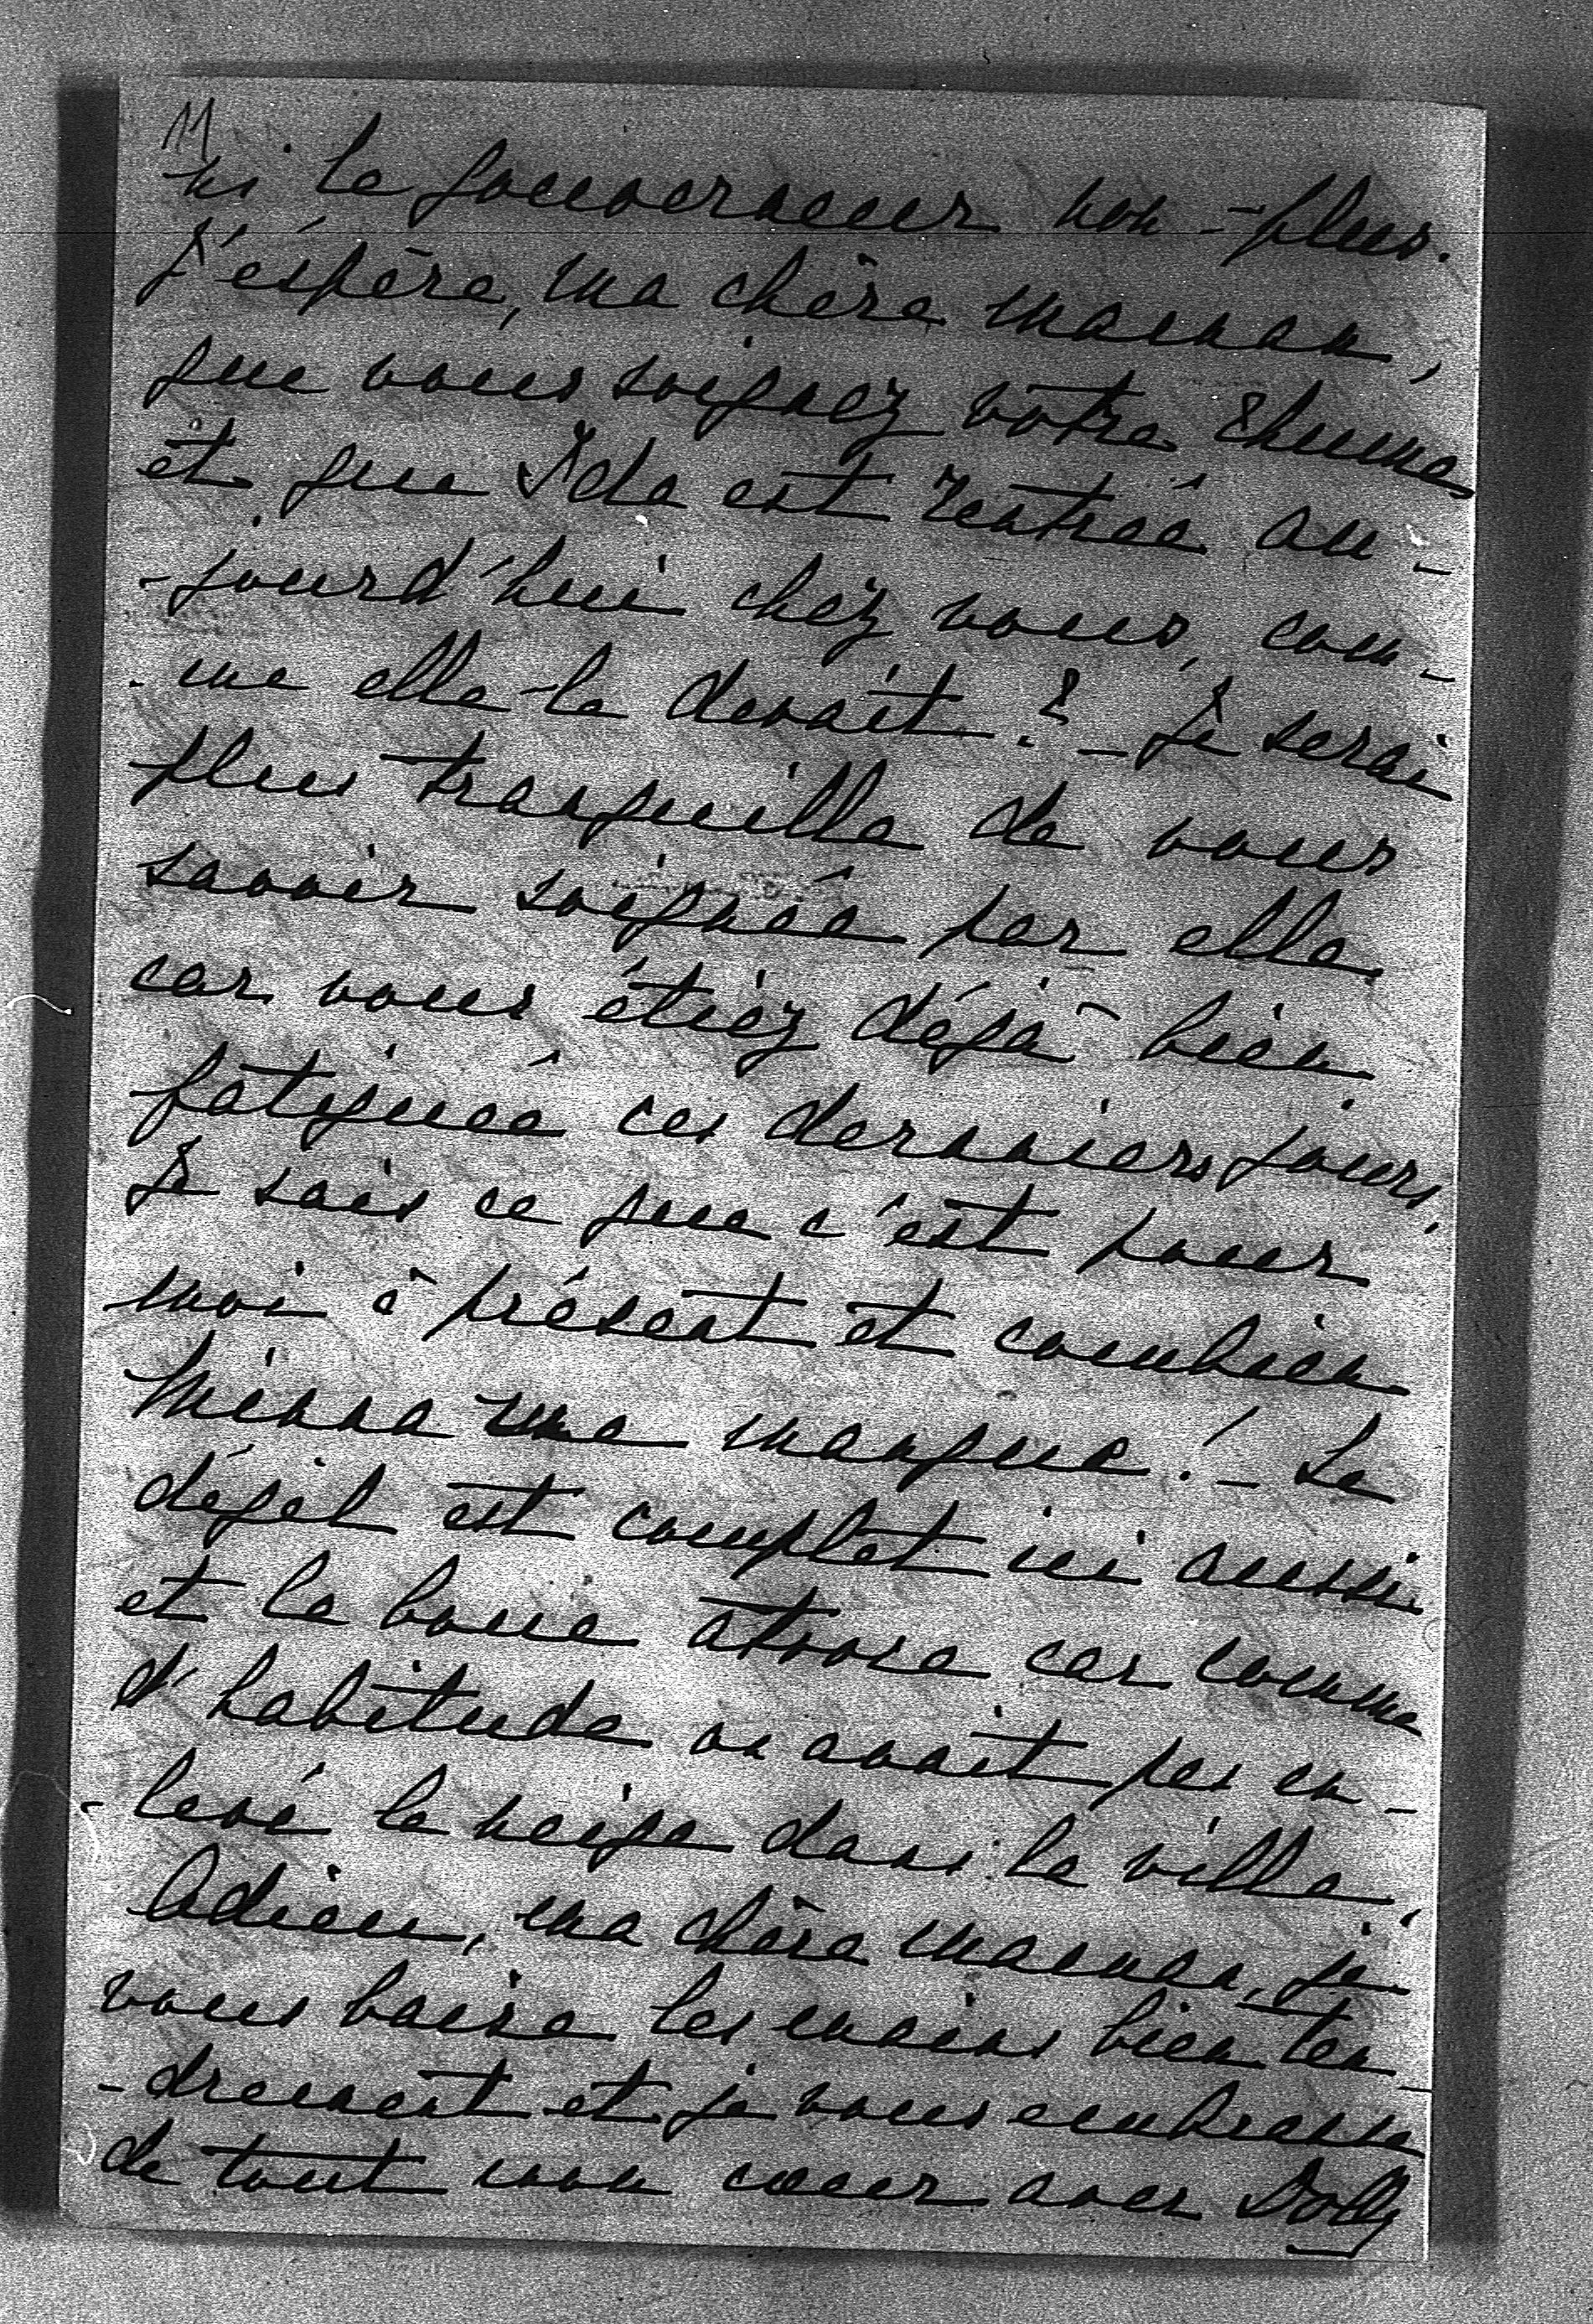 11
ni le gouverneur non-plus.
J'éspère, ma chère maman,
que vous soignez votre rhume
et que Ida est rentrée au-
-jourd'hui chez vous, com-
-me elle le devait? – Je serai
plus tranquille de vous
savoir soignée par elle,
car vous étiez déjà bien
fatiguée ces derniers jours.
Je sais ce que c'est pour
moi à présent et combien
Minna me manque! – Le
dégel est complet ici aussi
et la boue atroce car comme
d'habitude on avait pas en-
-levé la neige dans la ville.
Adieu, ma chère maman, je
vous baise les mains bien ten-
-drement et je vous embrasse
de tout mon coeur avec Dolly